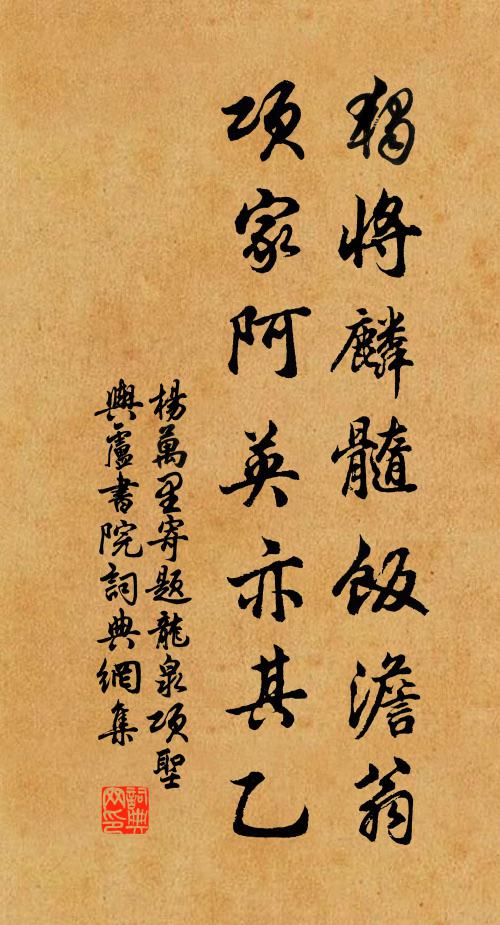 獨將麟髓飯澹翁
項家阿英亦其乙
楊萬里寄題龍泉項聖
與盧書院詞典網集
詞典网印